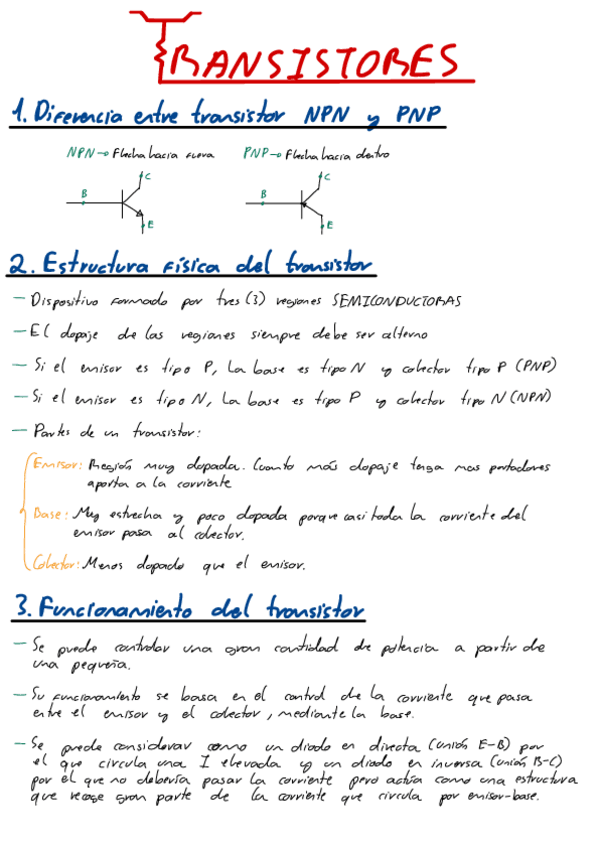 TRANSISTORES
1. Diferencia entre transistor NPN y PNP
NPN→ Flecha hacia fuera PNP→ Flecha hacia dentro
C C
B B
E E
2. Estructura física del transistor
— Dispositivo formado por tres (3) regiones SEMICONDUCTORAS
— El dopaje de las regiones siempre debe ser alterno
— Si el emisor es tipo P, La base es tipo N y colector tipo P (PNP)
— Si el emisor es tipo N, La base es tipo P y colector tipo N (NPN)
— Partes de un transistor:
Emisor: Región muy dopada. Cuanto más dopaje tenga mas portadores
aporta a la corriente
Base: Muy estrecha y poco dopada porque casi toda la corriente del
emisor pasa al colector.
Colector: Menos dopado que el emisor.
3. Funcionamiento del transistor
— Se puede controlar una gran cantidad de potencia a partir de
una pequeña.
— Su funcionamiento se basa en el control de la corriente que pasa
entre el emisor y el colector, mediante la base.
— Se puede considerar como un diodo en directa (unión E-B) por
el que circula una I elevada y un diodo en inversa (unión B-C)
por el que no debería pasar la corriente pero actúa como una estructura
que recoge gran parte de la corriente que circula por emisor-base.